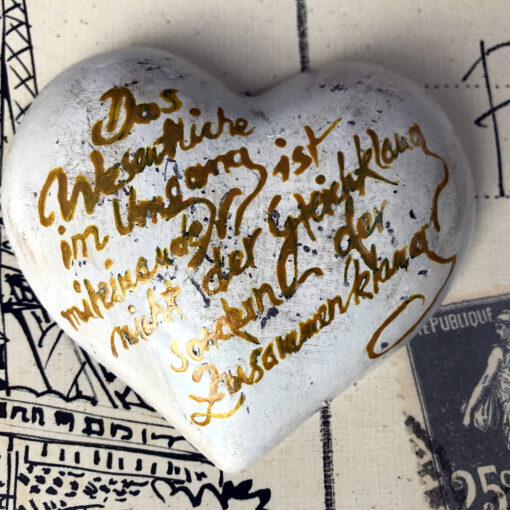 Das
Wesentliche
im Umgang ist
miteinander
nicht der Gleichklang
sondern der
Zusammenklang
REPUBLIQUE
25c